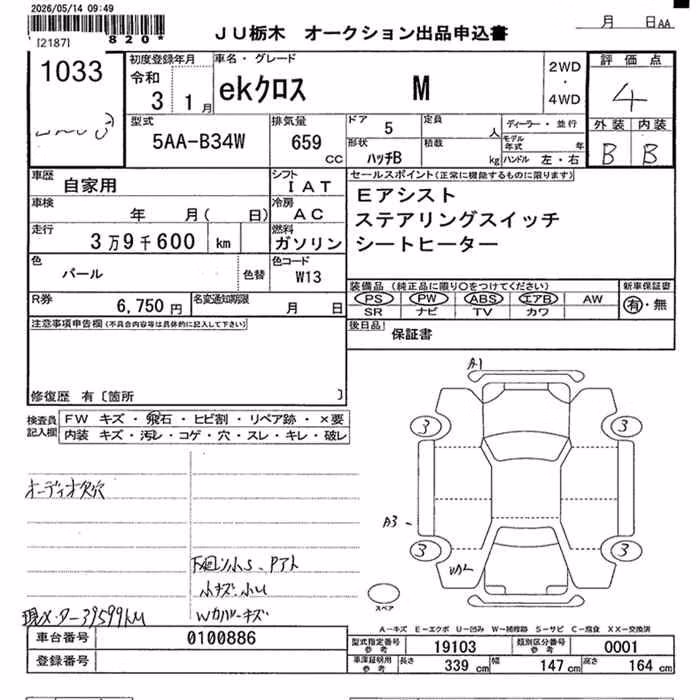 2026/05/14 09:49
[2187] 820*
JU栃木 オークション出品申込書
月 日AA
1033
初度登録年月
令和
3 1月
車名・グレード
ekクロス M
2WD
・
4WD
評価点
4
外装 内装
B B
型式
5AA-B34W
排気量
659
CC
ドア 5
定員 人
ディーラー・並行
形状
ハッチB
積載 kg
モデル年式 年
ハンドル 左・右
車歴
自家用
シフト
IAT
車検 年 月( 日)
冷房
AC
走行
3万9千600 km
燃料
ガソリン
色
パール
色替
色コード
W13
R券
6,750円
名変通知期限
月 日
セールスポイント(正常に機能するものに限ります)
Eアシスト
ステアリングスイッチ
シートヒーター
装備品(純正品に限り○をつけてください)
PS PW ABS エアB AW
SR ナビ TV カワ
新車保証書
有・無
後日品
保証書
注意事項申告欄(不具合内容等は具体的に記入して下さい)
修復歴 有〔箇所 〕
検査員記入欄
FW キズ・飛石・ヒビ割・リペア跡・×要
内装 キズ・汚レ・コゲ・穴・スレ・キレ・破レ
オーディオ欠穴
下廻り小S、Pアト
小キズ、小U
Wカバーキズ
現メーター39599km
A1
3
3
A3
3
3
スペア
A-キズ E-エクボ U-凹み W-補修跡 S-サビ C-腐食 XX-交換済
車台番号 0100886
登録番号
型式指定番号
参考
19103
類別区分番号
参考
0001
車庫証明用
参考
長さ 339 cm
幅 147 cm
高さ 164 cm